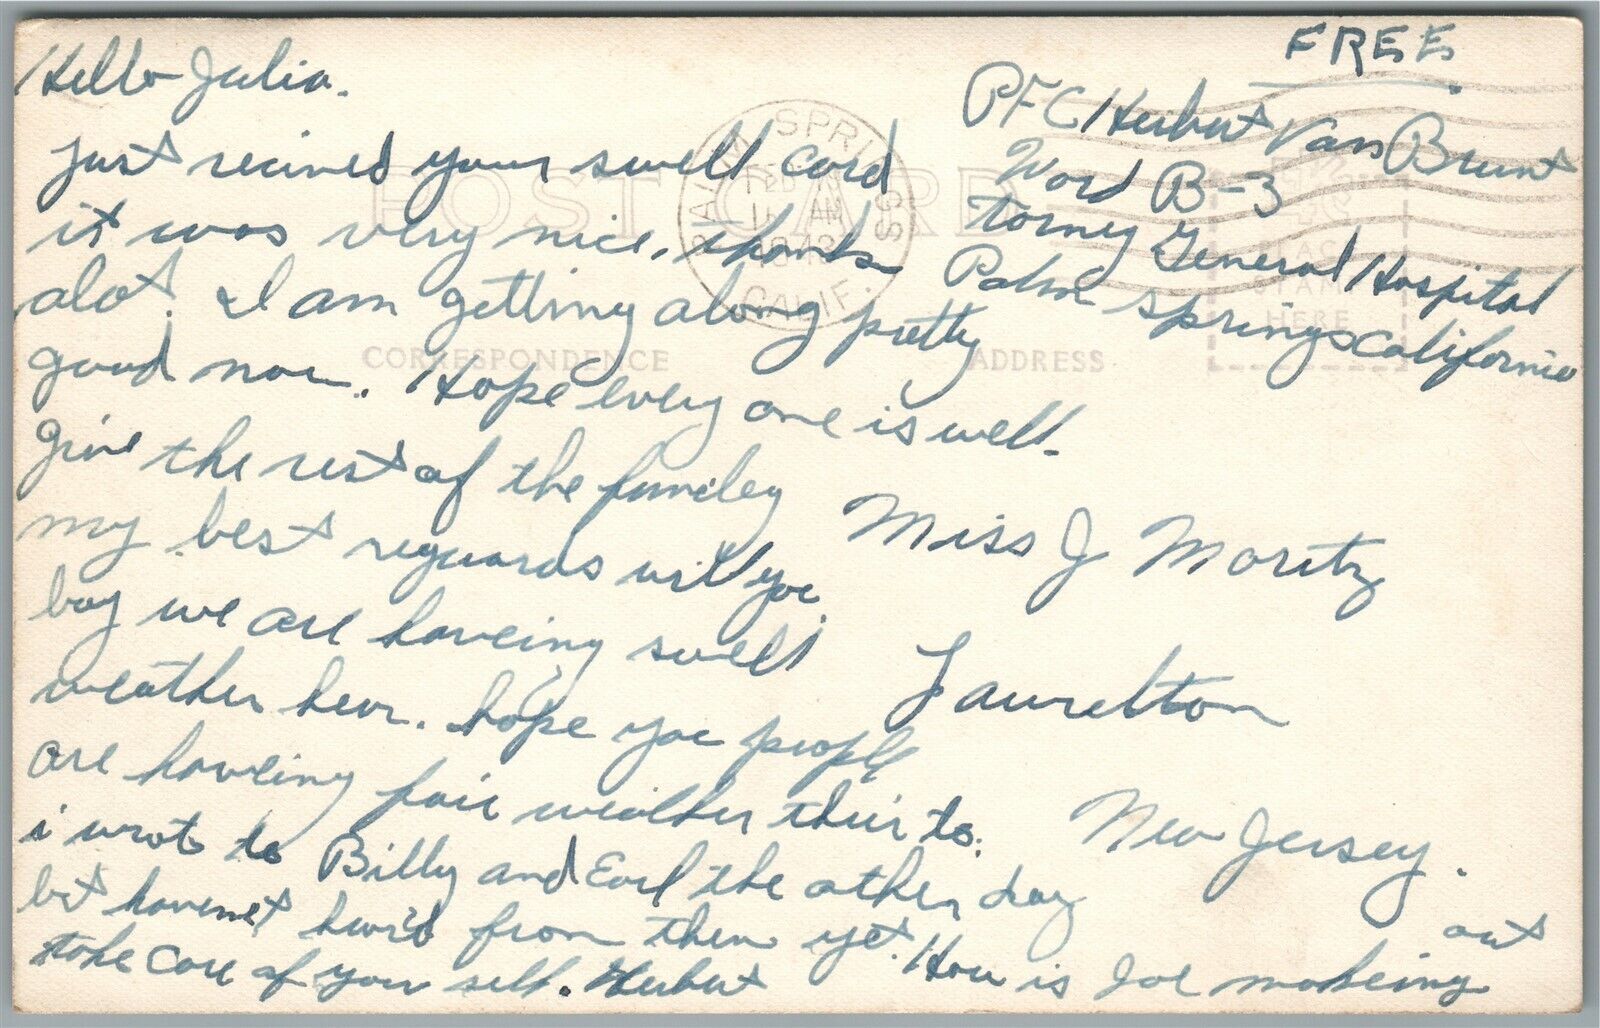 FREE
PFC Herbert Van Brunt
Ward B-3
Torney General Hospital
Palm Springs California
PALM SPRINGS
1943
CALIF.
POST CARD
CORRESPONDENCE
ADDRESS
PLACE
STAMP
HERE
Hello Julia.
just recived your swell card
it was very nice, thanks
alot. I am getting along pretty
good now. Hope every one is well.
give the rest of the familey
my best reguards will you.
boy we are haveing swell
weather hear. hope you people
are haveing fair weather their to.
i wrote to Billy and Earl the other day
but havenet heard from them yet. How is Joe makeing
out
take care of your self. Herbert
Miss J Moritz
Laurelton
New Jersey.